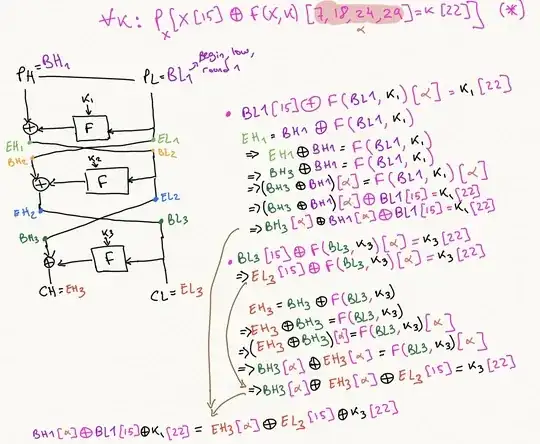 ∀K: Pₓ[X[15] ⊕ F(X,K)[7,18,24,29] = K[22]] (*)
α
PH=BH₁
PL=BL₁
Begin, low, round 1
K₁
F
EH₁
EL₁
BH₂
BL₂
K₂
F
EH₂
EL₂
BH₃
BL₃
K₃
F
CH=EH₃
CL=EL₃
• BL1[15] ⊕ F(BL1, K₁)[α] = K₁[22]
EH₁ = BH1 ⊕ F(BL1, K₁)
=> EH1 ⊕ BH1 = F(BL1, K₁)
=> BH3 ⊕ BH1 = F(BL1, K₁)
=> (BH3 ⊕ BH1)[α] = F(BL1, K₁)[α]
=> (BH3 ⊕ BH1)[α] ⊕ BL1[15] = K₁[22]
=> BH3[α] ⊕ BH1[α] ⊕ BL1[15] = K₁[22]
• BL3[15] ⊕ F(BL3, K₃)[α] = K₃[22]
=> EL3[15] ⊕ F(BL3, K₃)[α] = K₃[22]
EH3 = BH3 ⊕ F(BL3, K₃)
=> EH3 ⊕ BH3 = F(BL3, K₃)
=> (EH3 ⊕ BH3)[α] = F(BL3, K₃)[α]
=> BH3[α] ⊕ EH3[α] = F(BL3, K₃)[α]
=> BH3[α] ⊕ EH3[α] ⊕ EL3[15] = K₃[22]
BH1[α] ⊕ BL1[15] ⊕ K₁[22] = EH3[α] ⊕ EL3[15] ⊕ K3[22]